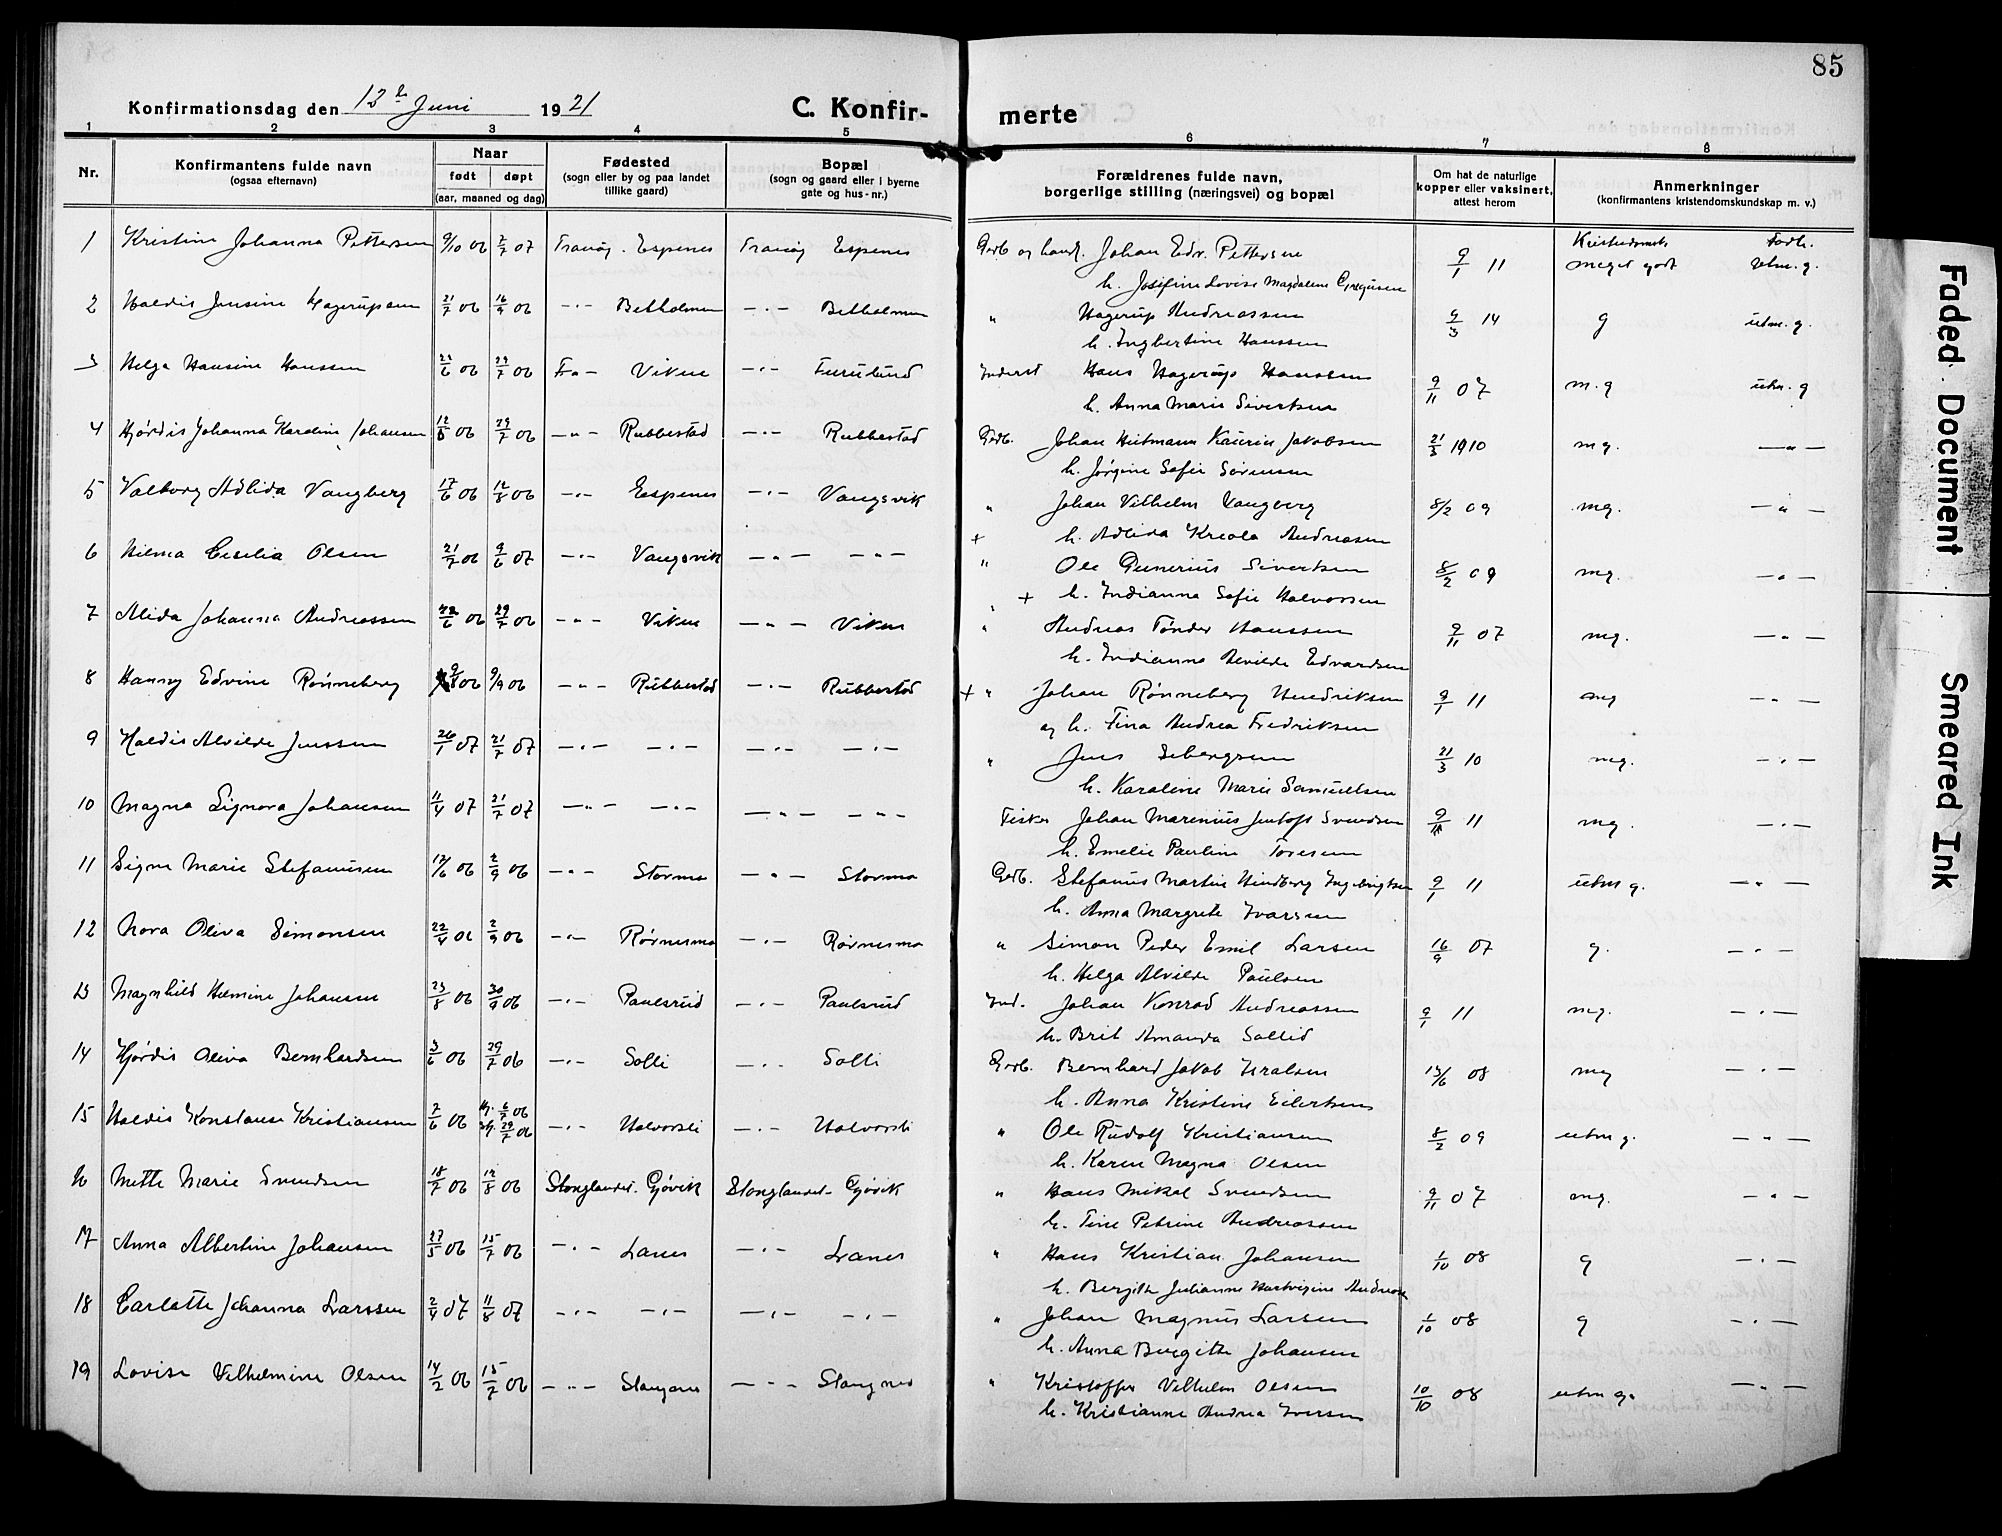 85
Konfirmationsdag den 12 Juni 1921
C. Konfir-
merte
1 2 3 4 5 6 7 8
Nr.
Konfirmantens fulde navn
(ogsaa efternavn)
Naar
født døpt
(aar, maaned og dag)
Fødested
(sogn eller by og paa landet
tillike gaard)
Bopæl
(sogn og gaard eller i byerne
gate og hus-nr.)
Forældrenes fulde navn,
borgerlige stilling (næringsvei) og bopæl
Om hat de naturlige
kopper eller vaksinert,
attest herom
Anmerkninger
(konfirmantens kristendomskundskap m. v.)
1 Kristine Johanna Pettersen 9/10 06 2/2 07 Tranøy. Espenes Tranøy Espenes Johan Edv. Pettersen 9/1 11 meget godt utm. g.
h. Josefine Lovise Magdalene
2 Haldis Jensine Hagerupsen 21/7 06 16/9 06 -"- Betholmen -"- Betholmen " Hagerup Andreassen 14 g utm. g.
h. Ingbertine Hanssen
3 Helga Hansine Hanssen 06 29/7 06 Viken -"- Furulund Inderst Hans Hagerup Hanssen 9/11 07 m.g utm. g
h. Anna Marie Sivertsen
4 Hjørdis Johanna Karoline Johansen 06 29/7 06 -"- Rubbestad -"- Rubbestad Gdb. Johan Jakobsen 21/3 1910 mg. -"-
h. Jørgine Sofie Sørensen
5 Valborg Adlida Vangberg 17/6 06 12/8 06 -"- Espenes -"- Vangsvik " Johan Vilhelm Vangberg 8/2 09 mg. -"-
+ h. Adlida Andreasen
6 Hilma Cecilia Olsen 06 9/6 07 -"- Vangsvik -"- -"- " Ole Gunerius Sivertsen 8/2 09 mg. -"-
+ h. Indianna Sofie Halvorsen
7 Alida Johanna Andreassen 06 29/7 06 -"- Viken -"- Viken " Andreas Tønder Hanssen 9/11 07 mg. -"-
h. Indianna Alvilde Edvardsen
8 Hansy Edvine Rønneberg 06 9/9 06 -"- Rubbestad -"- Rubbestad + " Johan Rønneberg Hendriksen 9/1 11 mg -"-
og h. Tina Andrea Fredriksen
9 Haldis Alvilde Jenssen 26/1 07 21/7 07 -"- -"- -"- -"- " Jens 21/3 10 mg. -"-
h. Karoline Marie Samuelsen
10 Magna Signora Johansen 11/4 07 21/7 07 -"- -"- -"- -"- Fisker Johan Marenius Jentoft Svendsen 11 mg. -"-
h. Emelie Pauline Toresen
11 Signe Marie Stefanusen 12/6 06 2/9 06 -"- Stormo -"- Stormo Gdb. Stefanus Martin Hindberg Ingebrigtsen 9/1 11 utm g. -"-
h. Anna Margrete Ivarsen
12 Nora Oliva Simonsen 22/4 06 2/9 06 -"- Rørnesmo -"- Rørnesmo " Simon Peder Emil Larsen 16/9 07 g. -"-
h. Helga Alvilde Paulsen
13 Magnhild Hermine Johansen 23/8 06 30/9 06 -"- Paulsrud -"- Paulsrud Ind. Johan Konrad Andreassen 9/1 11 mg. -"-
h. Brit Amanda Sollid
14 Hjørdis Oliva Bernhardsen 3/6 06 29/7 06 -"- Solli -"- Solli Gdb. Bernhard Jakob 13/6 08 mg -"-
h. Anna Kristine Eilertsen
15 Haldis Konstanse Kristiansen 7/6 06 06 29/7 06 -"- Halvorsli -"- Halvorsli " Ole Rudolf Kristiansen 8/2 09 utm g. -"-
h. Karen Magna Olsen
16 Mette Marie Svendsen 18/7 06 12/8 06 Stonglandet. Gjøvik Stonglandet- Gjøvik " Hans Mikal Svendsen 9/11 07 mg. -"-
h. Tine Petrine Andreassen
17 Anna Albertine Johansen 27/5 06 15/7 06 -"- Lanes -"- Lanes " Hans Kristian Johansen 1/10 08 g -"-
h. Bergitte Julianne Hartvigine
18 Carlotte Johanna Larssen 2/4 07 11/8 07 -"- -"- -"- -"- " Johan Magnus Larsen 1/10 08 g -"-
h. Anna Bergitte Johansen
19 Lovise Vilhelmine Olsen 14/2 06 15/7 06 -"- Stangnes -"- Stangnes " Kristoffer Vilhelm Olsen 10/10 08 utm g. -"-
h. Kristianne Andrea Iversen
Faded Document
Smeared Ink